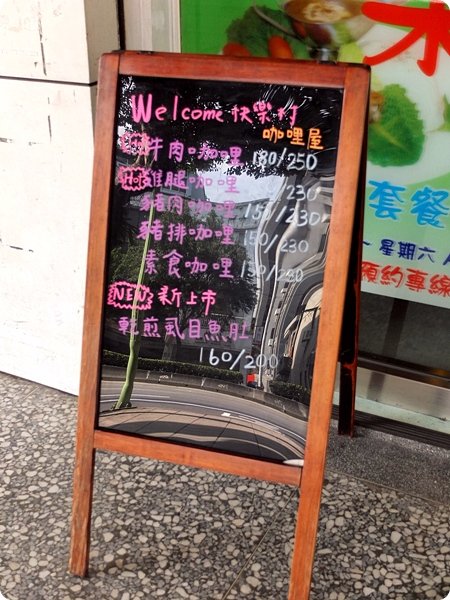 Welcome 快樂村
咖哩屋
牛肉咖哩 180/250
雞腿咖哩 /230
豬肉咖哩 150/230
豬排咖哩 150/230
素食咖哩
NEW 新上市
乾煎虱目魚肚
160/200
套餐
星期六
預約專線